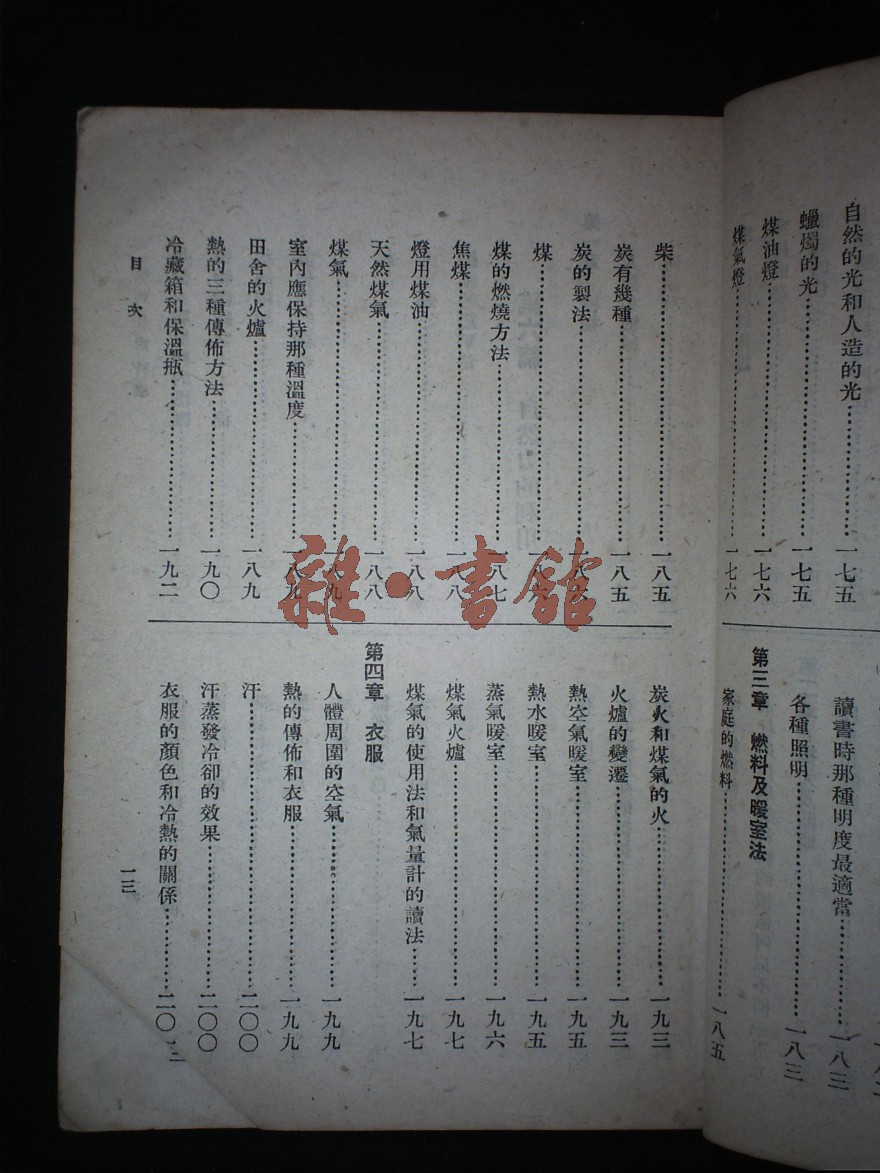 自然的光和人造的光……一七五
蠟燭的光……一七五
煤油燈……一七六
煤氣燈……一七六
讀書時那種明度最適當……一八三
各種照明……一八三
第三章 燃料及暖室法
家庭的燃料……一八五
柴……一八五
炭有幾種……一八五
炭的製法……一八六
煤……一八六
煤的燃燒方法……一八七
焦煤……一八八
燈用煤油……一八八
天然煤氣……一八八
煤氣……一八九
室內應保持那種溫度……一八九
田舍的火爐……一八九
熱的三種傳佈方法……一九〇
冷藏箱和保溫瓶……一九二
炭火和煤氣的火……一九三
火爐的變遷……一九三
熱空氣暖室……一九五
熱水暖室……一九五
蒸氣暖室……一九六
煤氣火爐……一九七
煤氣的使用法和氣量計的讀法……一九七
第四章 衣服
人體周圍的空氣……一九九
熱的傳佈和衣服……一九九
汗……二〇〇
汗蒸發冷卻的效果……二〇〇
衣服的顏色和冷熱的關係……二〇二
目次
一三
雜·書館